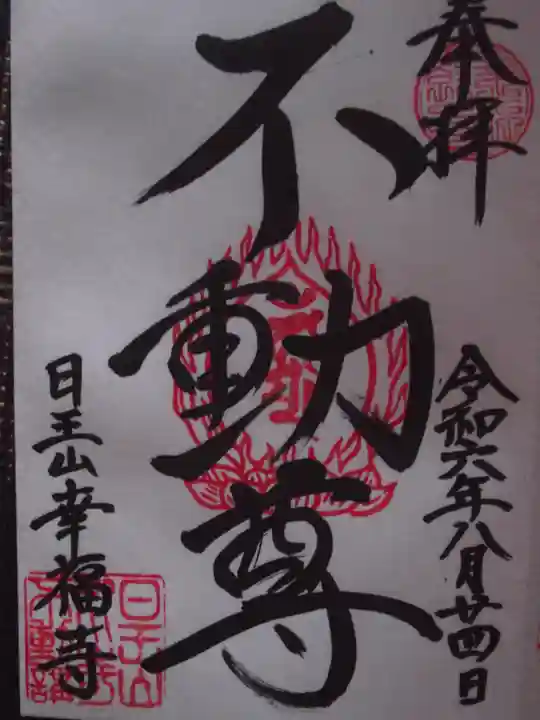 奉拝
令和六年八月廿四日
不動尊
日王山幸福寺